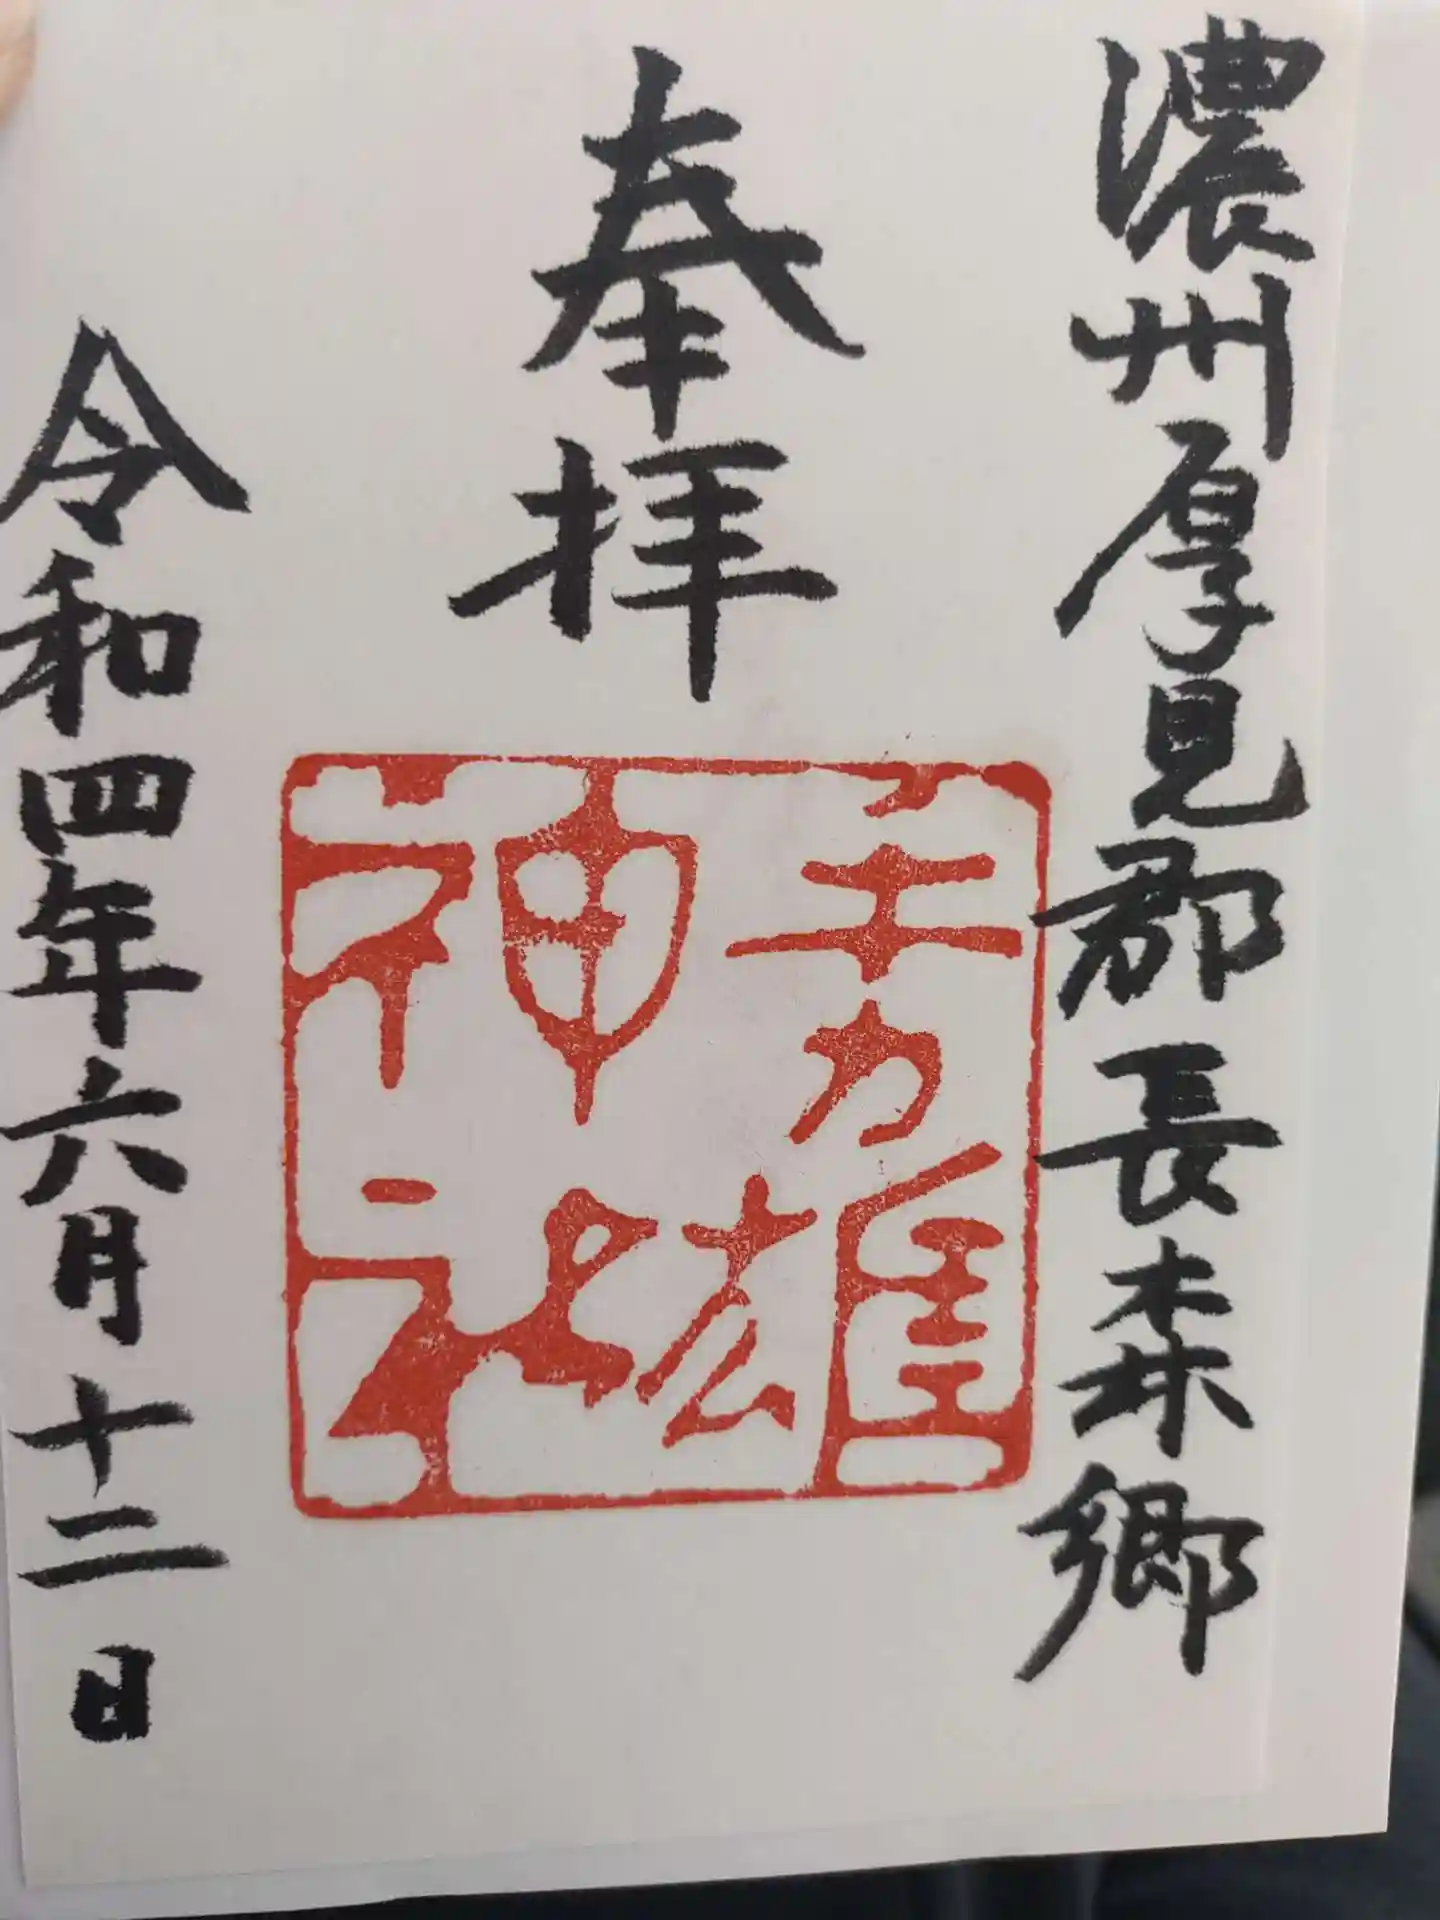 濃州厚見郡長森郷
奉拝
手力雄
神社
令和四年六月十二日